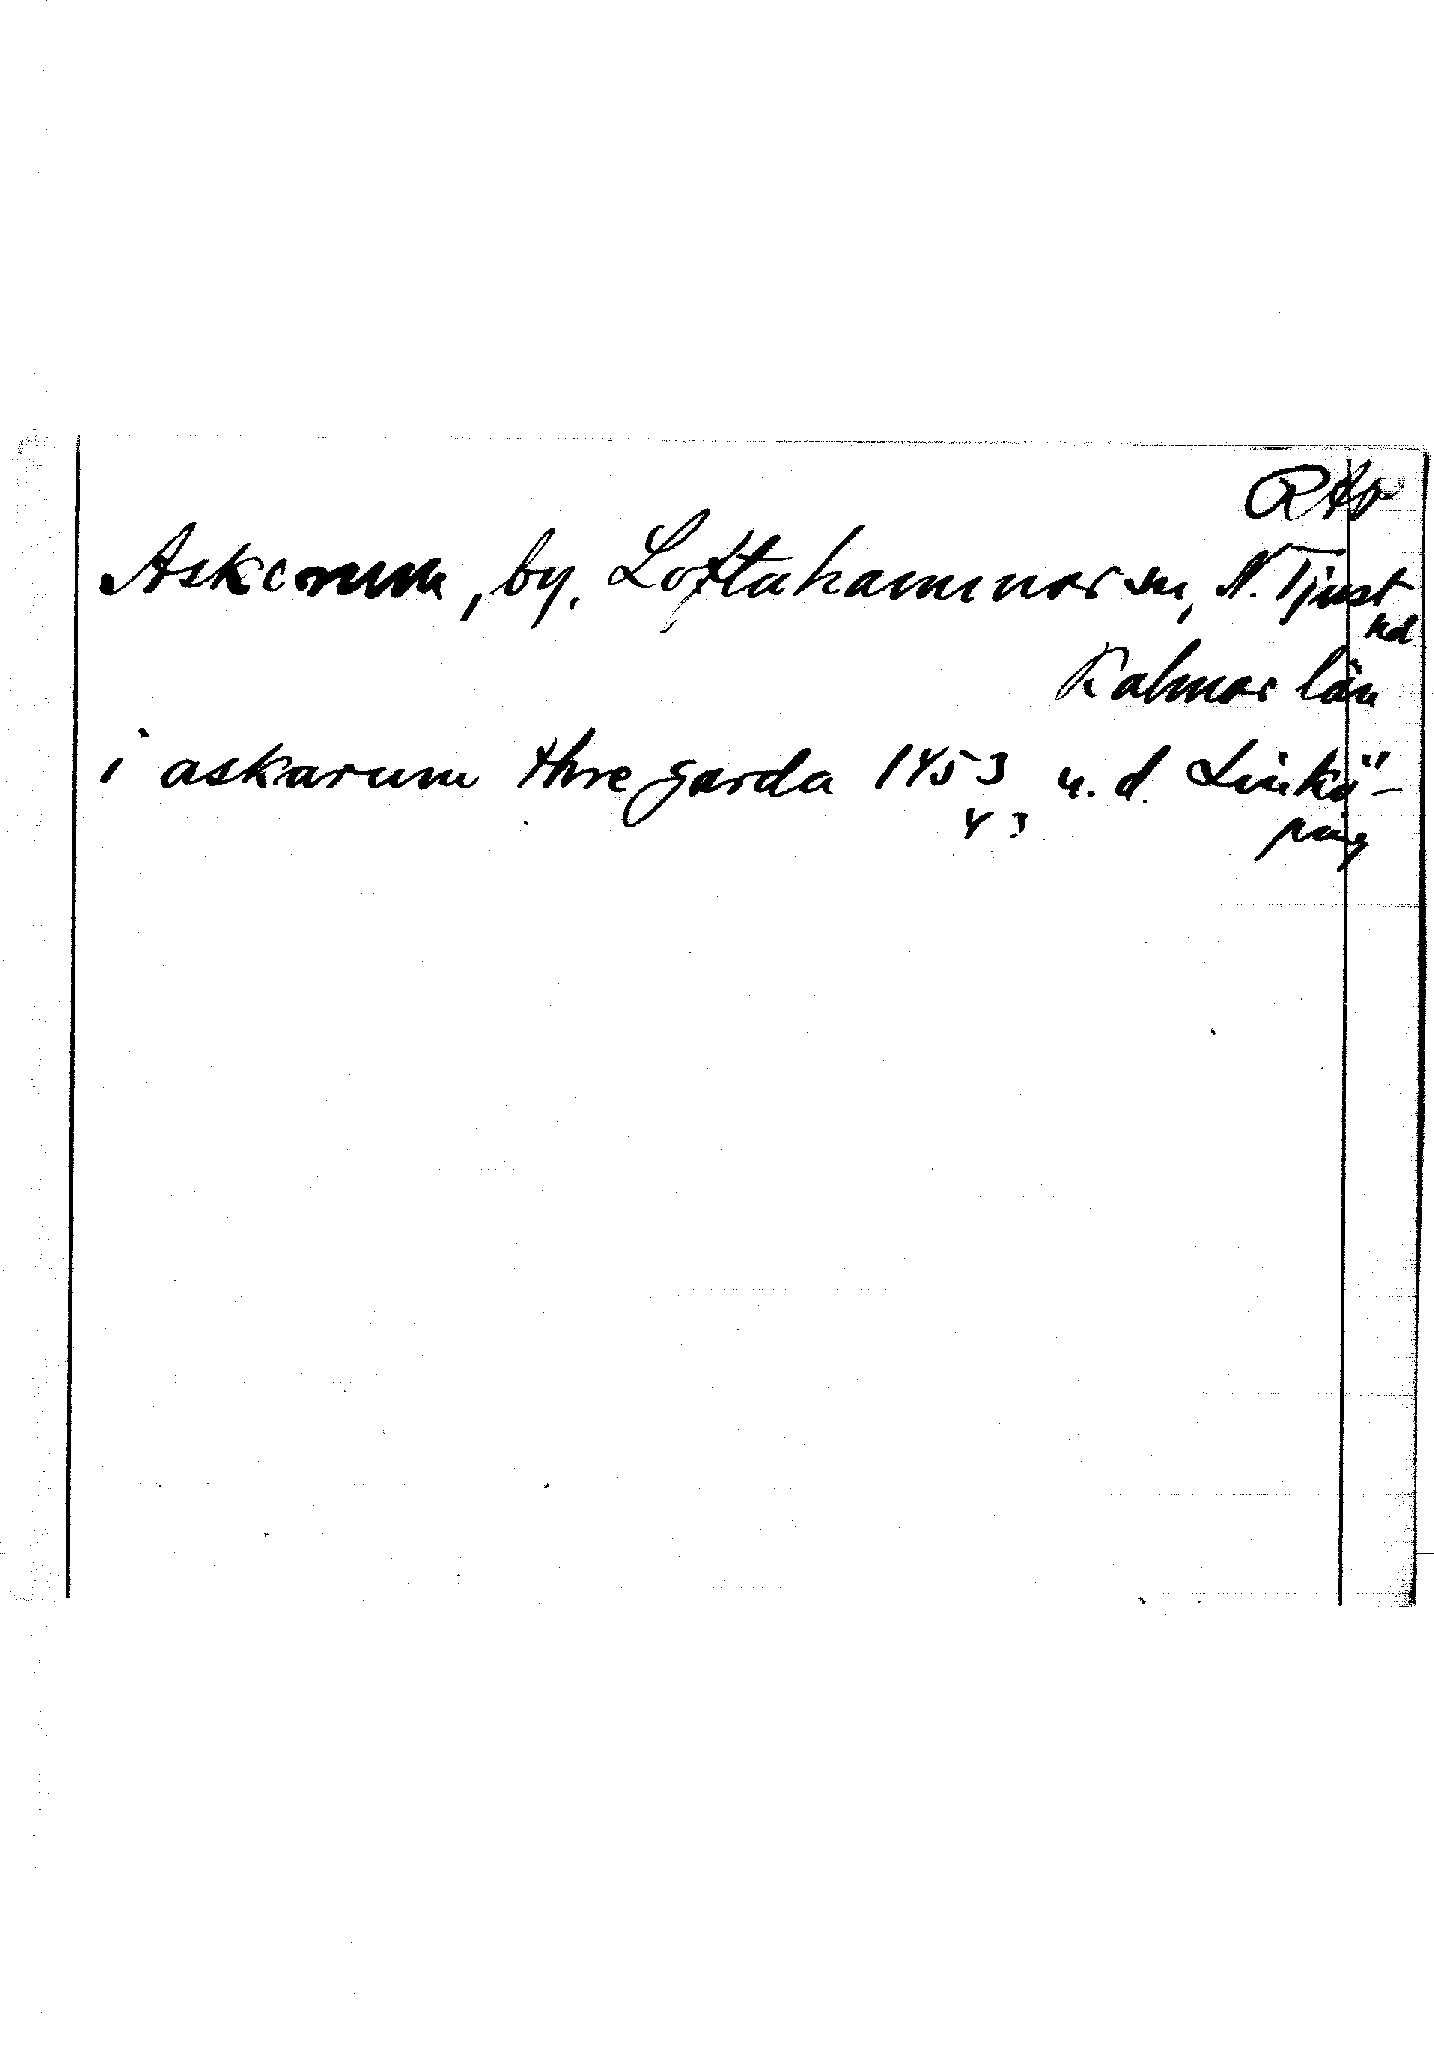 RAp
Askerum, by, Loftahammar sn, N. Tjust
hd
Kalmar län
i askarum thre garda 1453 u. d. Linkö-
4 3 ping